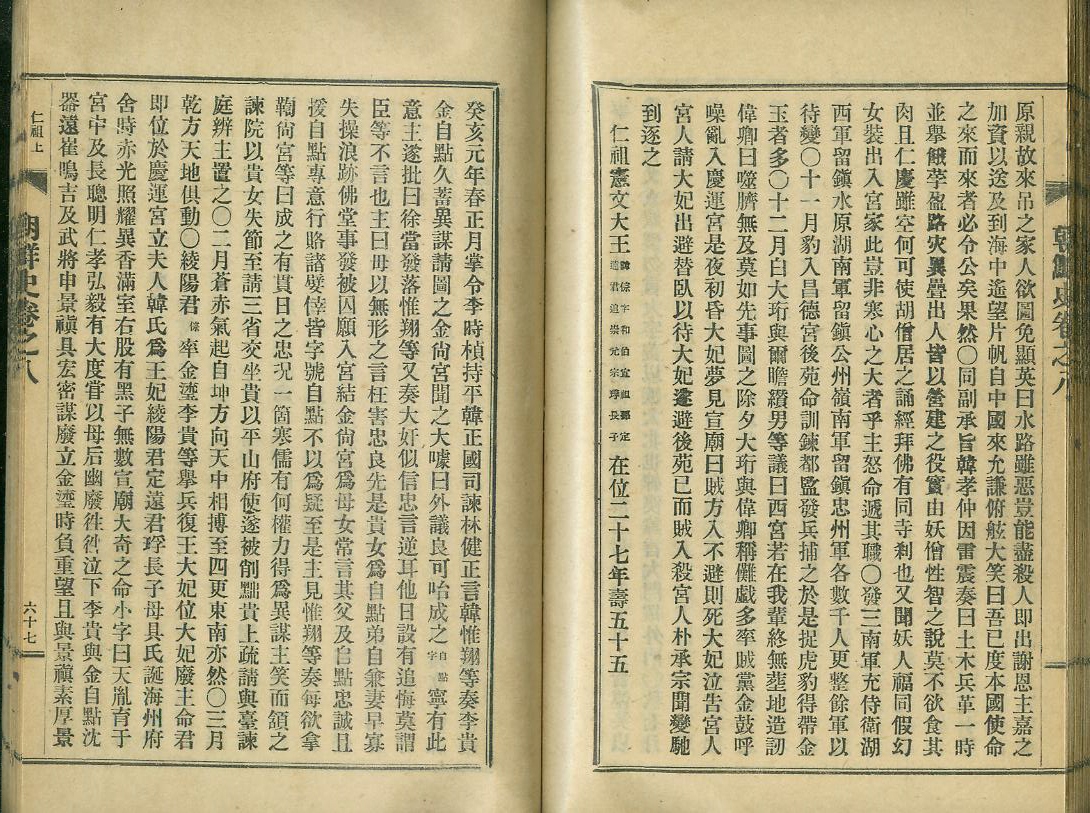 朝鮮史卷之八
原親故來吊之家人欲圖免顯英曰水路雖惡豈能盡殺人即出謝恩主嘉之
加資以送及到海中遙望片帆自中國來允謙俯舷大笑曰吾已度本國使命
之來而來者必令公矣果然〇同副承旨韓孝仲因雷震奏曰土木兵革一時
並舉餓莩盈路灾異疊出人皆以營建之役實由妖僧性智之說莫不欲食其
肉且仁慶雖空何可使胡僧居之誦經拜佛有同寺刹也又聞妖人福同假幻
女裝出入宮家此豈非寒心之大者乎主怒命遞其職〇發三南軍充侍衛湖
西軍留鎮水原湖南軍留鎮公州嶺南軍留鎮忠州軍各數千人更整餘軍以
待變〇十一月豹入昌德宮後苑命訓鍊都監發兵捕之於是捉虎豹得帶金
玉者多〇十二月白大珩與爾瞻纘男等議曰西宮若在我輩終無塟地造訒
偉卿曰噬臍無及莫如先事圖之除夕大珩與偉卿稱儺戲多率賊黨金鼓呼
噪亂入慶運宮是夜初昏大妃夢見宣廟曰賊方入不避則死大妃泣告宮人
宮人請大妃出避替臥以待大妃遂避後苑已而賊入殺宮人朴承宗聞變馳
到逐之
仁祖憲文大王 諱倧字和伯宣祖孫定遠君追崇元宗琈長子 在位二十七年壽五十五
癸亥元年春正月掌令李時楨持平韓正國司諫林健正言韓惟翔等奏李貴
金自點久蓄異謀請圖之金尙宮聞之大噱曰外議良可咍成之 自點字 寧有此
意主遂批曰徐當發落惟翔等又奏大奸似信忠言逆耳他日設有追悔莫謂
臣等不言也主曰毋以無形之言枉害忠良先是貴女爲自點弟自兼妻早寡
失操浪跡佛堂事發被囚願入宮結金尙宮爲母女常言其父及自點忠誠且
援自點專意行賂諸嬖倖皆字號自點不以爲疑至是主見惟翔等奏每欲拿
鞫尙宮等曰成之有貫日之忠况一箇寒儒有何權力得爲異謀主笑而頷之
諫院以貴女失節至請三省交坐貴以平山府使遂被削黜貴上疏請與臺諫
庭辨主置之〇二月蒼赤氣起自坤方向天中相搏至四更東南亦然〇三月
乾方天地俱動〇綾陽君 倧 率金瑬李貴等舉兵復王大妃位大妃廢主命君
即位於慶運宮立夫人韓氏爲王妃綾陽君定遠君琈長子母具氏誕海州府
舍時赤光照耀異香滿室右股有黑子無數宣廟大奇之命小字曰天胤育于
宮中及長聰明仁孝弘毅有大度甞以母后幽廢徃徃泣下李貴與金自點沈
器遠崔鳴吉及武將申景禛具宏密謀廢立金瑬時負重望且與景禛素厚景
仁祖上
朝鮮史卷之八
六十七